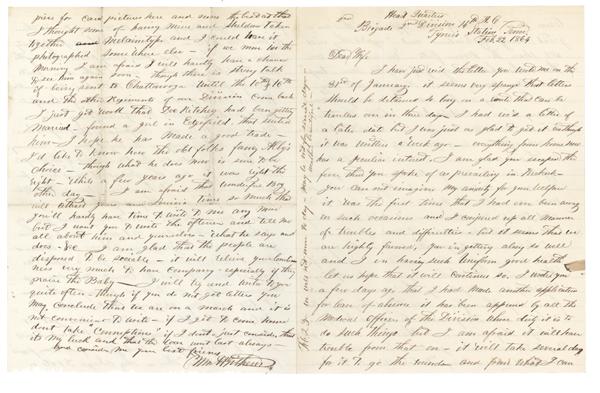 Head Quarters
Brigade 3rd Division 14th A.C.
Tyner's Station Tenn
Feb. 22 1864
Dear Wife,
I have just recd the letter you wrote me on the
31st of January, it seems very strange that letters
should be detained so long on a route that can be
traveled over in three days. I had recd a letter of a
later date but I was just as glad to get it as though
it was written a week ago - everything from home now
has a peculiar interest. I am glad you escaped the
fire that you spoke of as prevailing in
you can not imagine my anxiety for your welfare
it was the first time that I had ever been away
on such occasions and I conjured up all manner
of troubles and difficulties - but it seems that we
are highly favored, you in getting along so well
and I in having such uniform good health
let us hope that it will continue so. I wrote you
a few days ago that I had made another application
for leave of absence it has been approved by all the
Medical Officers of the Division whose duty it is to
do such things but I am afraid it will have
trouble from that on - it will take several days
for it to go the rounds and from what I can
price for card pictures here and some
I thought some of having mine and Sheldon taken
together Melainotype and I could have it
photographed somewhere else - if we move in the
morning I am afraid I will hardly have a chance
to see him again soon - though there is strong talk
of being sent to Chattanooga until the 10th
and the other Regiments of our Division come back
I just got word that Geo Kitchel had been getting
Married - found a girl in Edgefield that suited
him - I hope he has made a good trade -
I'd like to know how the old folks fancy Ally's
choice - though what he does now is sure to be
right - while a few years ago it was right the
other day I am afraid this wonderful Boy
will attract you and so much that
you'll hardly have time to write to me any more
but I want you to write the oftener and tell me
all about him and yourselves - What he says and
does - &c - I am glad that the people are
disposed to be sociable - it will relieve your loneliness
very much to have company - especially if they
praise the Baby - I will try and write to you
quite often - though if you do not get letters you
may conclude that we are on a march and it is
not convenient to write - if I get to come home
don't take "conniptions" if I don't, just consider that
it's my luck and that the War wont last always -
and consider me your best friend
Feb. 23. we did not move to day - may be not for several days -